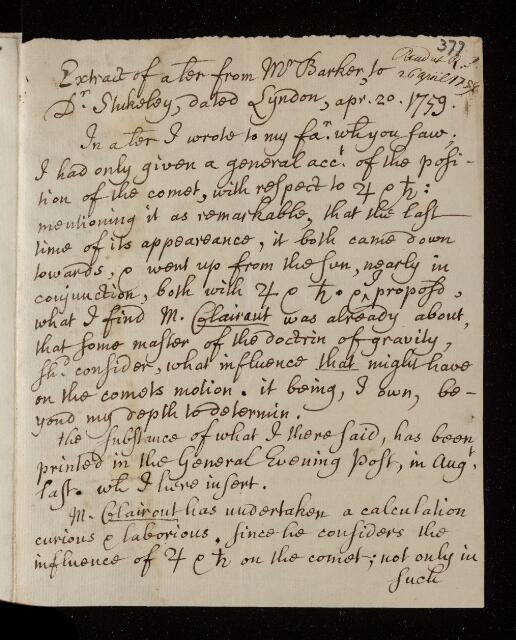 377
Read at R.S.
26 April 1759
Extract of a ler from Mr Barker, to
Dr. Stukeley, dated Lyndon, apr. 20. 1759.
In a ler I wrote to my far. wh you saw,
I had only given a general acct. of the posi-
tion of the comet, with respect to ♃ & ♄:
mentioning it as remarkable, that the last
time of its appeareance, it both came down
towards, & went up from the sun, nearly in
conjunction, both with ♃ & ♄. & proposd,
what I find M. Clairaut was already about,
that some master of the doctrin of gravity,
shd. consider, what influence that might have
on the comets motion. it being, I own, be-
yond my depth to determin.
the substance of what I there said, has been
printed in the General Evening Post, in Augt.
last. wh I here insert.
M. Clairout has undertaken a calculation
curious & laborious. since he considers the
influence of ♃ & ♄ on the comet; not only in
such